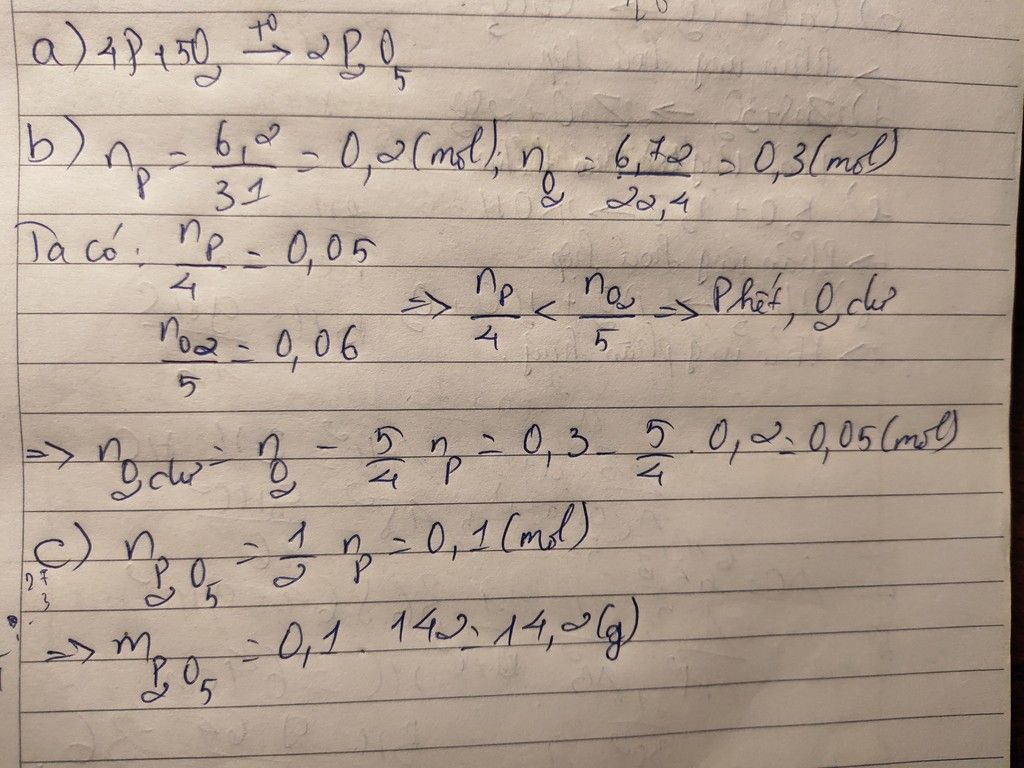 a) 4P + 5O₂ →(t⁰) 2P₂O₅
b) n_P = 6,2/31 = 0,2 (mol); n_O₂ = 6,72/22,4 = 0,3 (mol)
Ta có: n_P/4 = 0,05
n_O₂/5 = 0,06
=> n_P/4 < n_O₂/5 => P hết, O₂ dư
=> n_O₂ dư = n_O₂ - 5/4 n_P = 0,3 - 5/4 . 0,2 = 0,05 (mol)
c) n_P₂O₅ = 1/2 n_P = 0,1 (mol)
=> m_P₂O₅ = 0,1 . 142 = 14,2 (g)